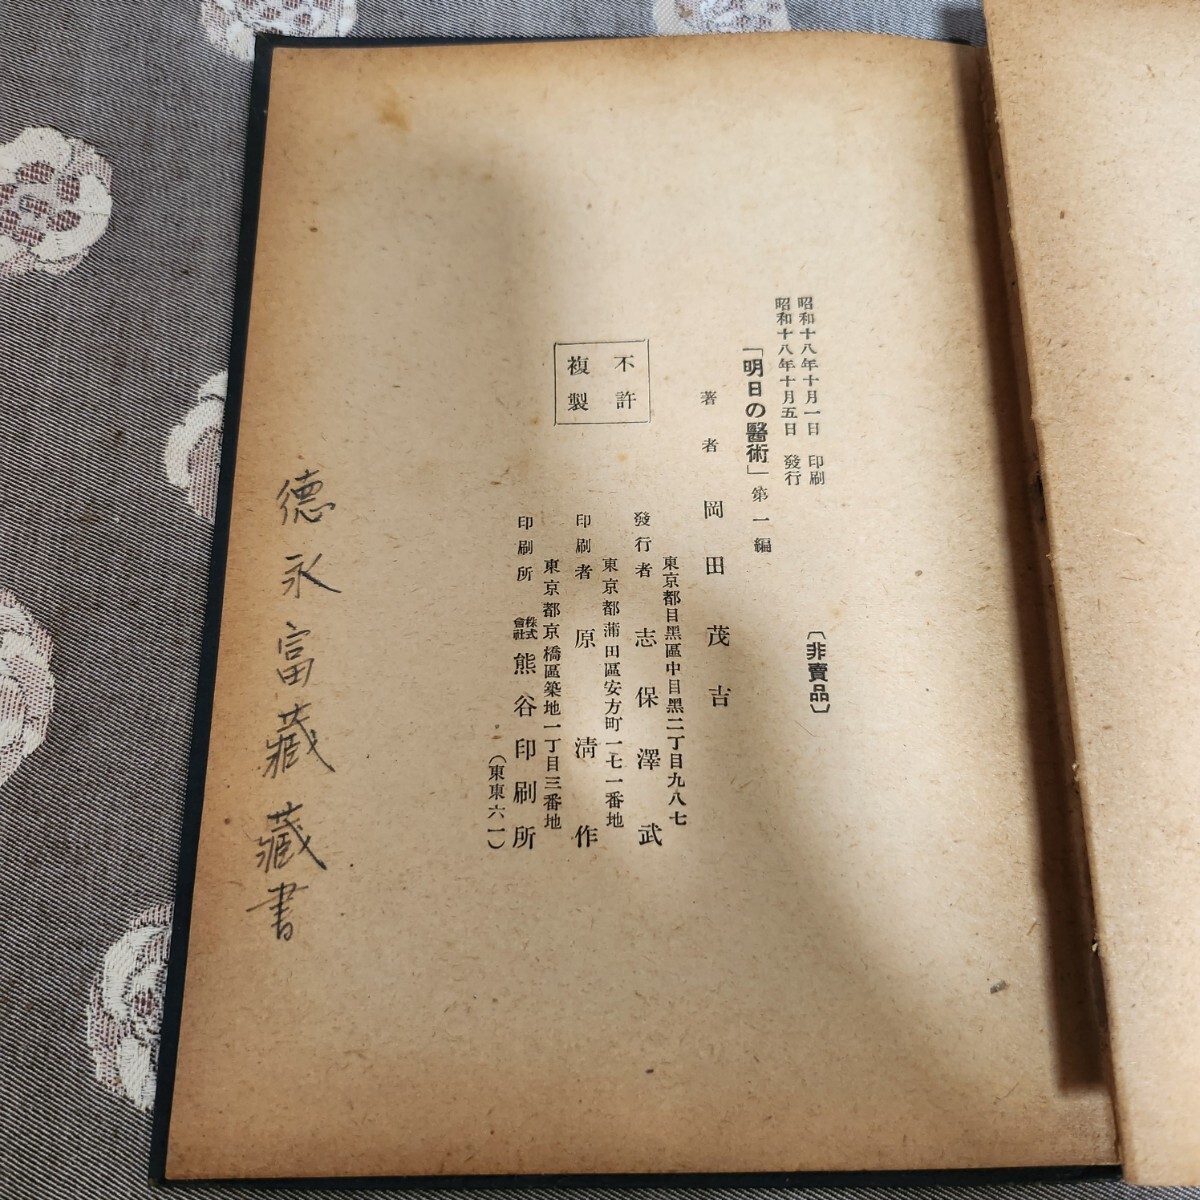 昭和十八年十月一日 印刷
昭和十八年十月五日 發行
〔非賣品〕
「明日の醫術」第一編
著者 岡田茂吉
東京都目黑區中目黑二丁目九八七
發行者 志保澤武
東京都蒲田區安方町一七一番地
印刷者 原清作
東京都京橋區築地一丁目三番地
印刷所 株式會社 熊谷印刷所
(東東六一)
不許
複製
德永富藏藏書